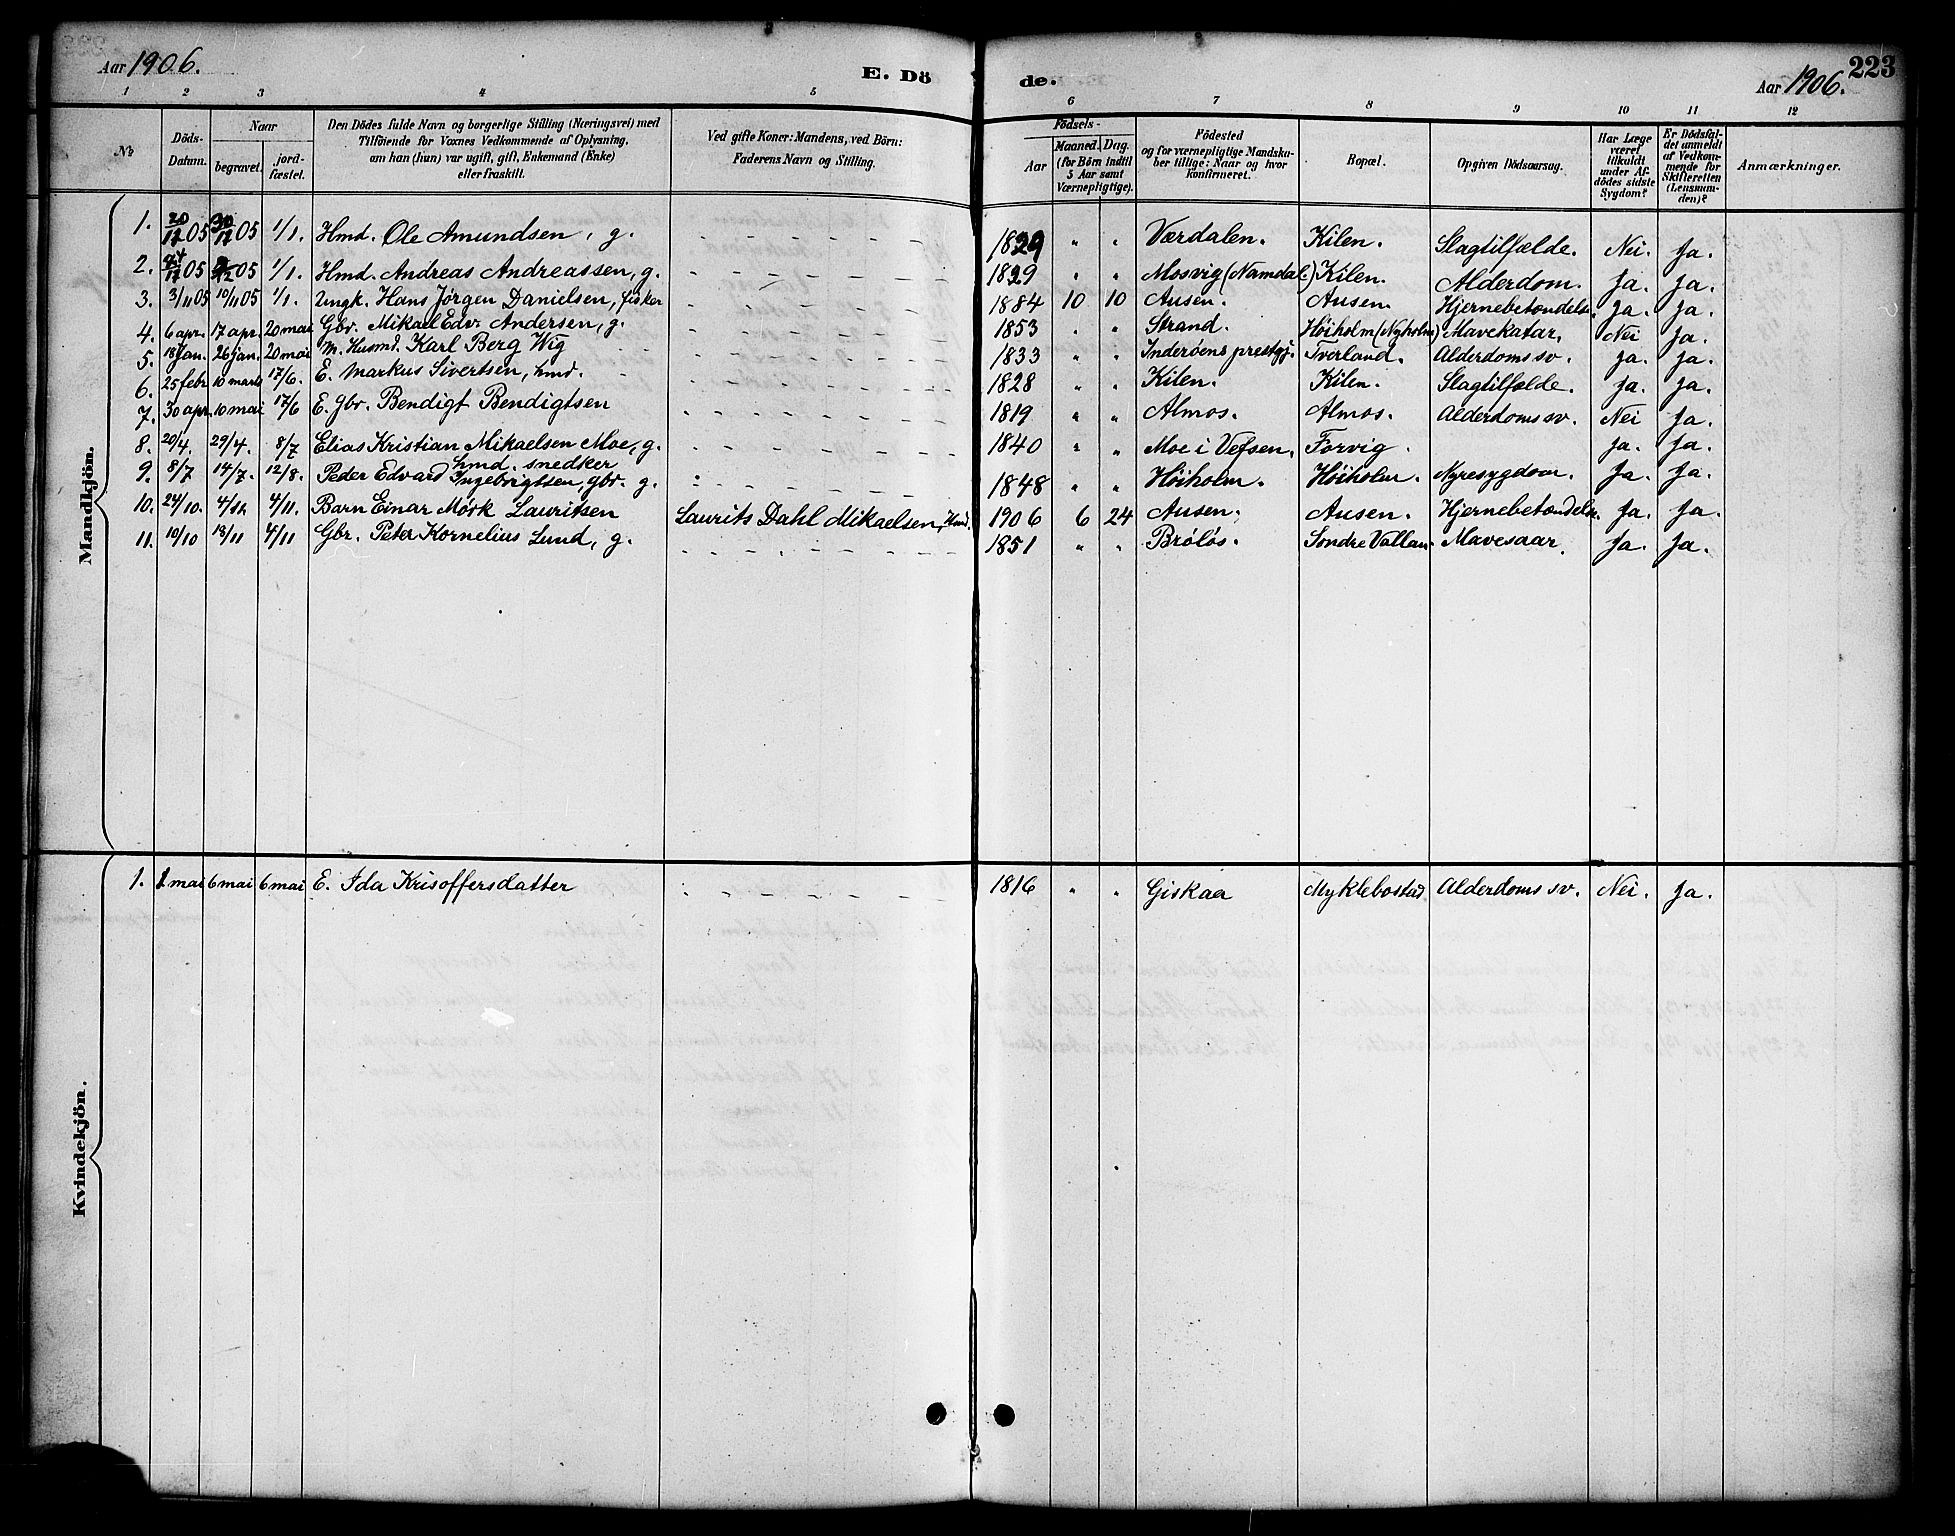 Aar 1906. E. Döde. Aar 1906. 223
1 2 3 4 5 6 7 8 9 10 11 12
№ Döds-Datum. Naar begravet. jordfæstet. Den Dödes fulde Navn og borgerlige Stilling (Næringsvei) med Tilföiende for Voxnes Vedkommende af Oplysning, om han (hun) var ugift, gift, Enkemand (Enke) eller fraskilt. Ved gifte Koner: Mandens, ved Börn: Faderens Navn og Stilling. Födsels- Aar Maaned. Dag. (for Börn indtil 5 Aar samt Værnepligtige). Födested og for værnepligtige Mandskaber tillige: Naar og hvor konfirmeret. Bopæl. Opgiven Dödsaarsag. Har Læge været tilkaldt under Afdödes sidste Sygdom? Er Dödsfaldet anmeldt af Vedkommende for Skifteretten (Lensmanden)? Anmærkninger.
Mandkjön.
1. 20/12 05 30/12 05 1/1. Hmd. Ole Amundsen, g. 1829 " " Værdalen. Kilen. Slagtilfælde. Nei. Ja.
2. 05 05 1/1. Hmd. Andreas Andreassen, g. 1829 " " Mosvig (Namdal.) Kilen. Alderdom. Ja. Ja.
3. 3/11 05 10/11 05 1/1. Ungk. Hans Jørgen Danielsen, fisker 1884 10 10 Ausen. Ausen. Hjernebetændelse. Ja. Ja.
4. 6 apr. 17 apr. 20 mai Gbr. Mikael Edv. Andersen, g. 1853 " " Strand. Høiholm (Nyholm) Mavekatar. Nei Ja.
5. 18 Jan. 26 jan. 20 mai M. Husmd. Karl Berg Wig 1833 " " Inderøens prestgj. Tverland. Alderdoms sv. Ja. Ja.
6. 25 febr 10 marts 17/6. E. Markus Sivertsen, hmd. 1828 " " Kilen. Kilen. Slagtilfælde. Ja. Ja.
7. 30 apr. 10 mai 17/6 E. Gbr. Bendigt Bendigtsen 1819 " " Almos. Almos. Alderdoms sv. Nei Ja.
8. 20/4. 29/4. 8/7 Elias Kristian Mikaelsen Moe, g. hmd. snedker 1840 " " Moe i Vefsen. Forvig. Ja. Ja.
9. 8/7 14/7. 12/8. Peder Edvard Ingebrigtsen, gbr. g. 1848 " " Høiholm. Høiholm. Nyresygdom. Ja. Ja.
10. 24/10. 4/11. 4/11. Barn Einar Mørk Lauritsen Laurits Dahl Mikaelsen, Hmd. 1906 6 24 Ausen. Ausen. Hjernebetændelse. Ja. Ja.
11. 10/10 18/11 4/11 Gbr. Peter Kornelius Lund, g. 1851 " " Brøløs. Søndre Vallan Mavesaar. Ja. Ja.
Kvindekjön.
1. 1 mai 6 mai 6 mai E. Ida Krisoffersdatter 1816 " " Giskaa Myklebostad Alderdoms sv. Nei. Ja.